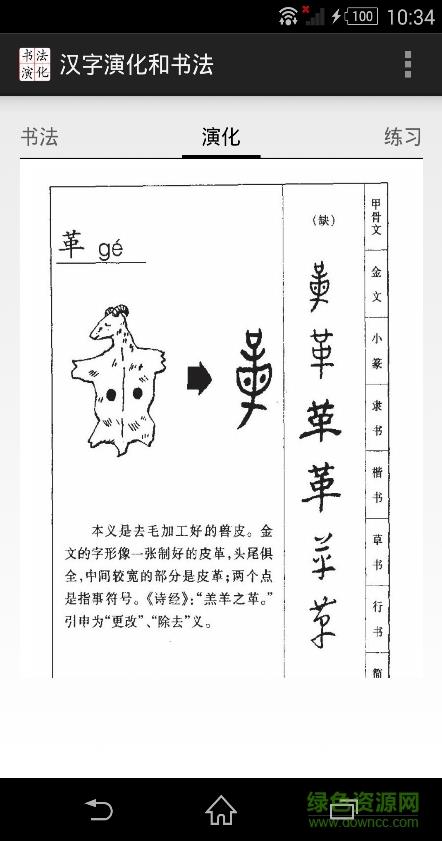 100 10:34
书法
演化
汉字演化和书法
书法 演化 练习
革 gé
(缺)
甲骨文
金文
小篆
隶书
楷书
草书
行书
简
革
革
革
革
革
革
本义是去毛加工好的兽皮。金
文的字形像一张制好的皮革,头尾俱
全,中间较宽的部分是皮革;两个点
是指事符号。《诗经》:“羔羊之革。”
引申为“更改”、“除去”义。
绿色资源网
www.downcc.com